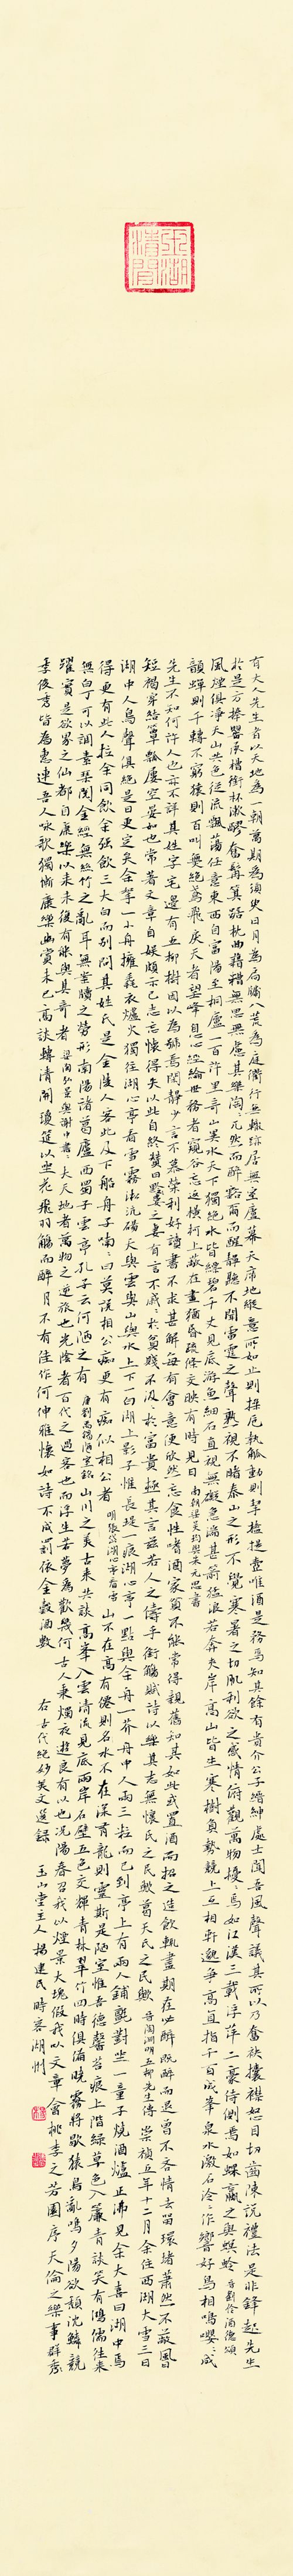 有大人先生者以天地為一朝萬期為須臾日月為扃牖八荒為庭衢行無轍跡居無室廬幕天席地縱意所如止則操卮執觚動則挈榼提壺唯酒是務焉知其餘有貴介公子縉紳處士聞吾風聲議其所以乃奮袂攘襟怒目切齒陳說禮法是非鋒起先生
於是方捧罌承槽銜杯漱醪奮髯箕踞枕麴藉糟無思無慮其樂陶〻兀然而醉豁爾而醒靜聽不聞雷霆之聲熟視不睹泰山之形不覺寒暑之切肌利欲之感情俯觀萬物擾〻焉如江漢三載浮萍二豪侍側焉如蜾蠃之與螟蛉 晉劉伶酒德頌
風煙俱淨天山共色從流飄蕩任意東西自富陽至桐廬一百許里奇山異水天下獨絕水皆縹碧千丈見底游魚細石直視無礙急湍甚箭猛浪若奔夾岸高山皆生寒樹負勢競上互相軒邈爭高直指千百成峯泉水激石泠〻作響好鳥相鳴嚶〻成
韻蟬則千轉不窮猿則百叫無絕鳶飛戾天者望峰息心經綸世務者窺谷忘返橫柯上蔽在晝猶昏疏條交映有時見日 南朝梁吳均與朱元思書
先生不知何許人也亦不詳其姓字宅邊有五柳樹因以為號焉閑靜少言不慕榮利好讀書不求甚解每有會意便欣然忘食性嗜酒家貧不能常得親舊知其如此或置酒而招之造飲輒盡期在必醉既醉而退曾不吝情去留環堵蕭然不蔽風日
短褐穿結簞瓢屢空晏如也常著文章自娛頗示己志忘懷得失以此自終贊曰黔婁之妻有言不戚〻於貧賤不汲〻於富貴極其言茲若人之儔乎銜觴賦詩以樂其志無懷氏之民歟葛天氏之民歟 晉陶淵明五柳先生傳 崇禎五年十二月余住西湖大雪三日
湖中人鳥聲俱絕是日更定矣余拏一小舟擁毳衣爐火獨往湖心亭看雪霧淞沆碭天與雲與山與水上下一白湖上影子惟長堤一痕湖心亭一點與余舟一芥舟中人兩三粒而已到亭上有兩人鋪氈對坐一童子燒酒爐正沸見余大喜曰湖中焉
得更有此人拉余同飲余強飲三大白而別問其姓氏是金陵人客此及下船舟子喃〻曰莫說相公痴更有痴似相公者 明張岱湖心亭看雪 山不在高有僊則名水不在深有龍則靈斯是陋室惟吾德馨苔痕上階綠草色入簾青談笑有鴻儒往來
無白丁可以調素琴閱金經無絲竹之亂耳無案牘之勞形南陽諸葛廬西蜀子雲亭孔子云何陋之有 唐劉禹錫陋室銘 山川之美古來共談高峯入雲清流見底兩岸石壁五色交輝青林翠竹四時俱備曉霧將歇猿鳥亂鳴夕陽欲頹沈鱗競
躍實是欲界之仙都自康樂以來未復有能與其奇者 梁陶弘景與謝中書 夫天地者萬物之逆旅也光陰者百代之過客也而浮生若夢為歡幾何古人秉燭夜遊良有以也況陽春召我以煙景大塊假我以文章會桃李之芳園序天倫之樂事群
季俊秀皆為惠連吾人咏歌獨慚康樂幽賞未已高談轉清開瓊筵以坐花飛羽觴而醉月不有佳作何伸雅懷如詩不成罰依金穀酒數 右古代絕妙美文選錄 玉山堂主人楊建民時客湖州